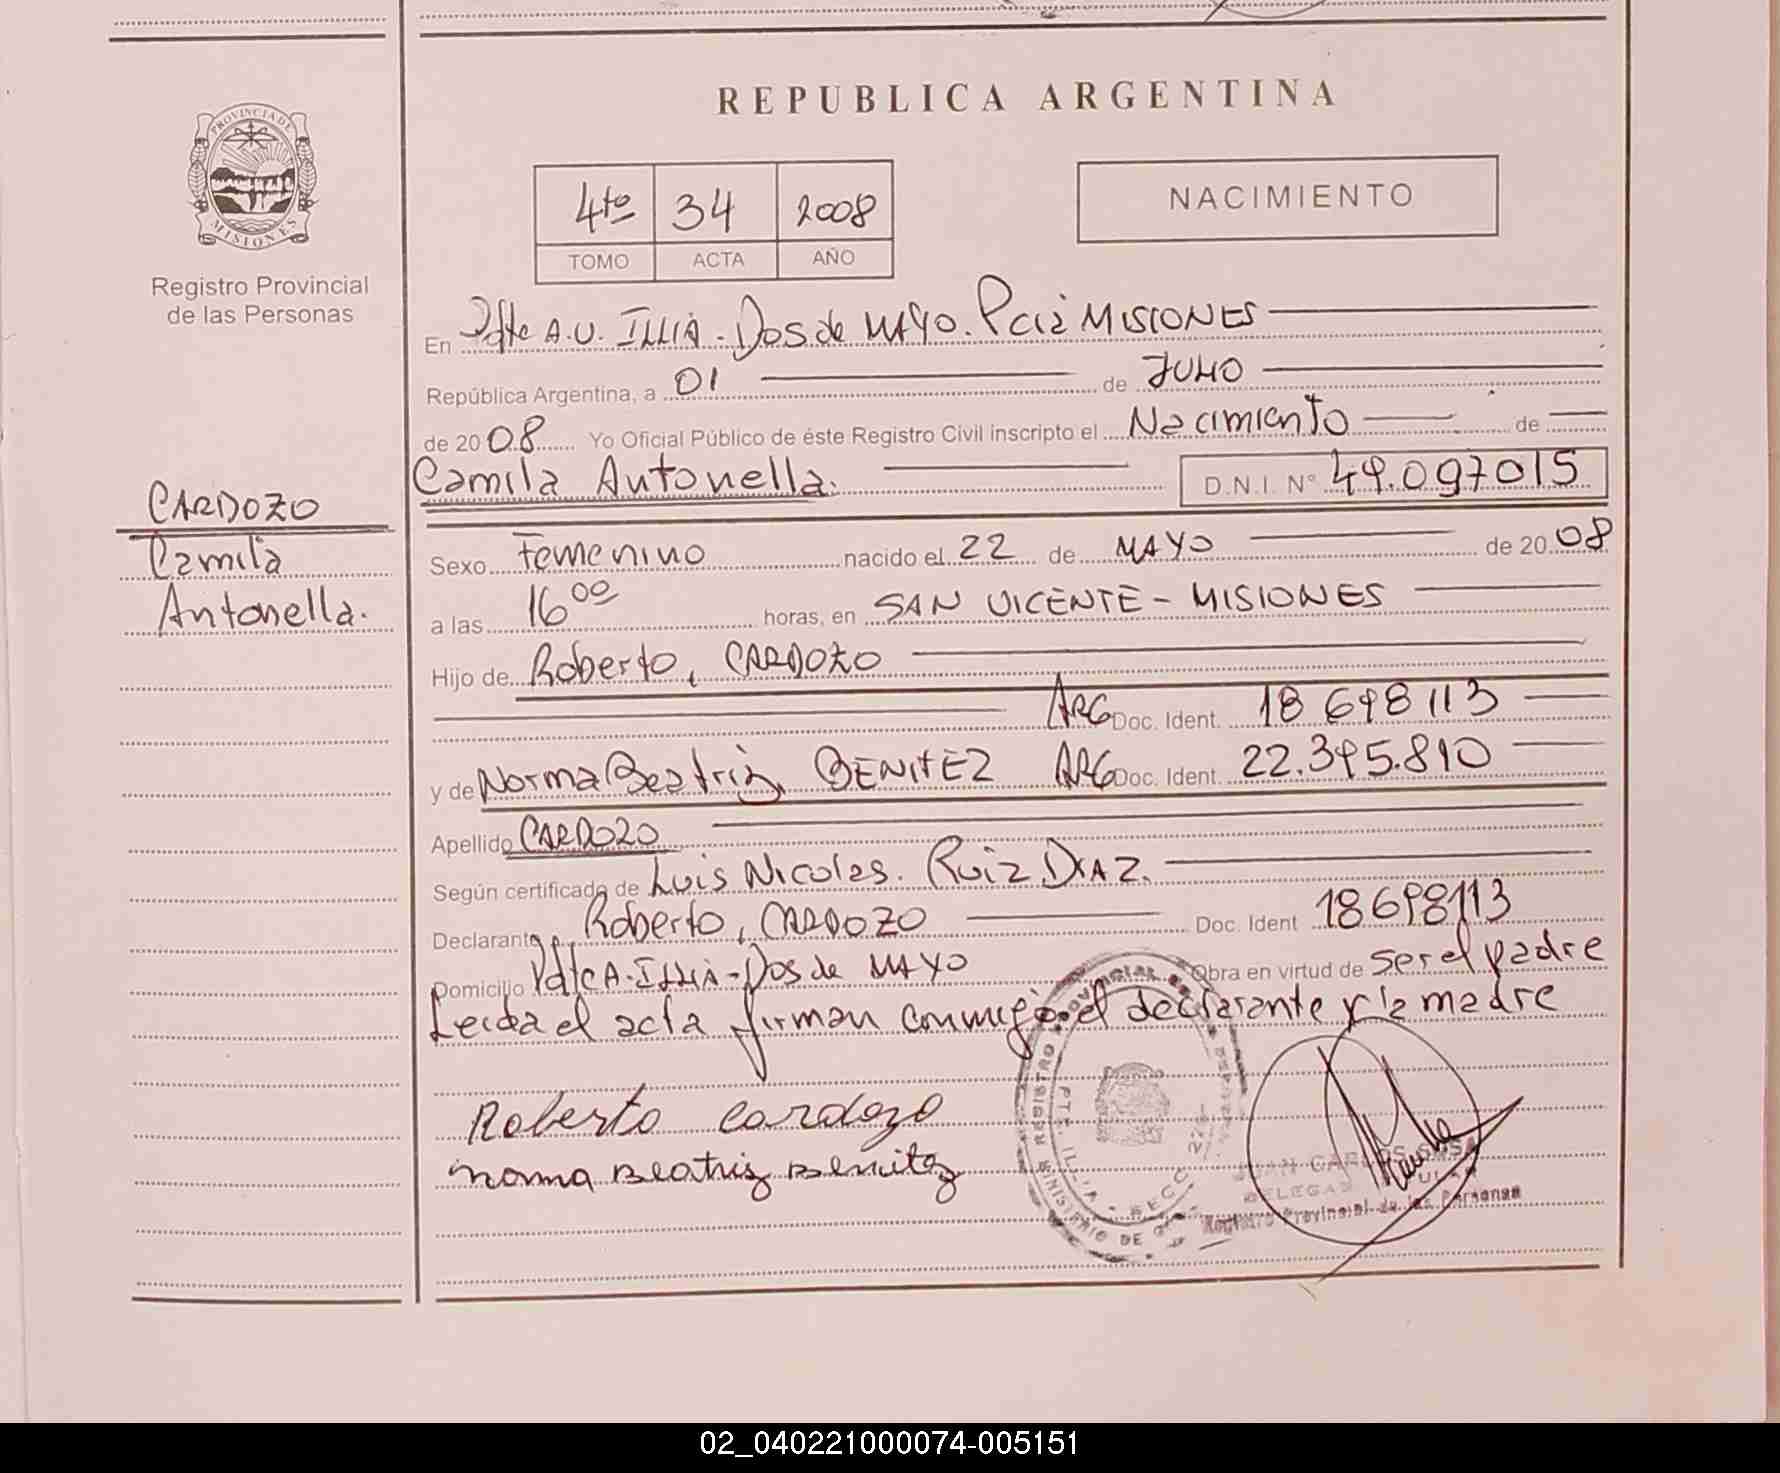 REPUBLICA ARGENTINA
PROVINCIA DE
MISIONES
Registro Provincial
de las Personas
4to 34 2008
TOMO ACTA AÑO
NACIMIENTO
En Pdte A.U. ILLIA - Dos de MAYO. Pcia MISIONES
República Argentina, a 01 de JULIO
de 2008 Yo Oficial Público de éste Registro Civil inscripto el Nacimiento de
Camila Antonella. D.N.I. N° 49.097015
CARDOZO
Camila
Antonella.
Sexo Femenino nacido el 22 de MAYO de 2008
a las 16 00 horas, en SAN VICENTE - MISIONES
Hijo de Roberto, CARDOZO
ARG Doc. Ident. 18 698 113
y de Norma Beatriz, BENITEZ ARG Doc. Ident. 22.395.810
Apellido CARDOZO
Según certificado de Luis Nicolas. Ruiz DIAZ.
Declarante Roberto, CARDOZO Doc. Ident 18698113
Domicilio Pdte A. ILLIA - Dos de MAYO Obra en virtud de ser el padre
Leida el acta firman conmigo el declarante y la madre
Roberto Cardozo
Norma Beatriz Benitez
REGISTRO PROVINCIAL DE
MINISTERIO DE
PTE. ILLIA - SECC.
JUAN CARLOS SOSA
Registro Provincial de las Personas
02_040221000074-005151